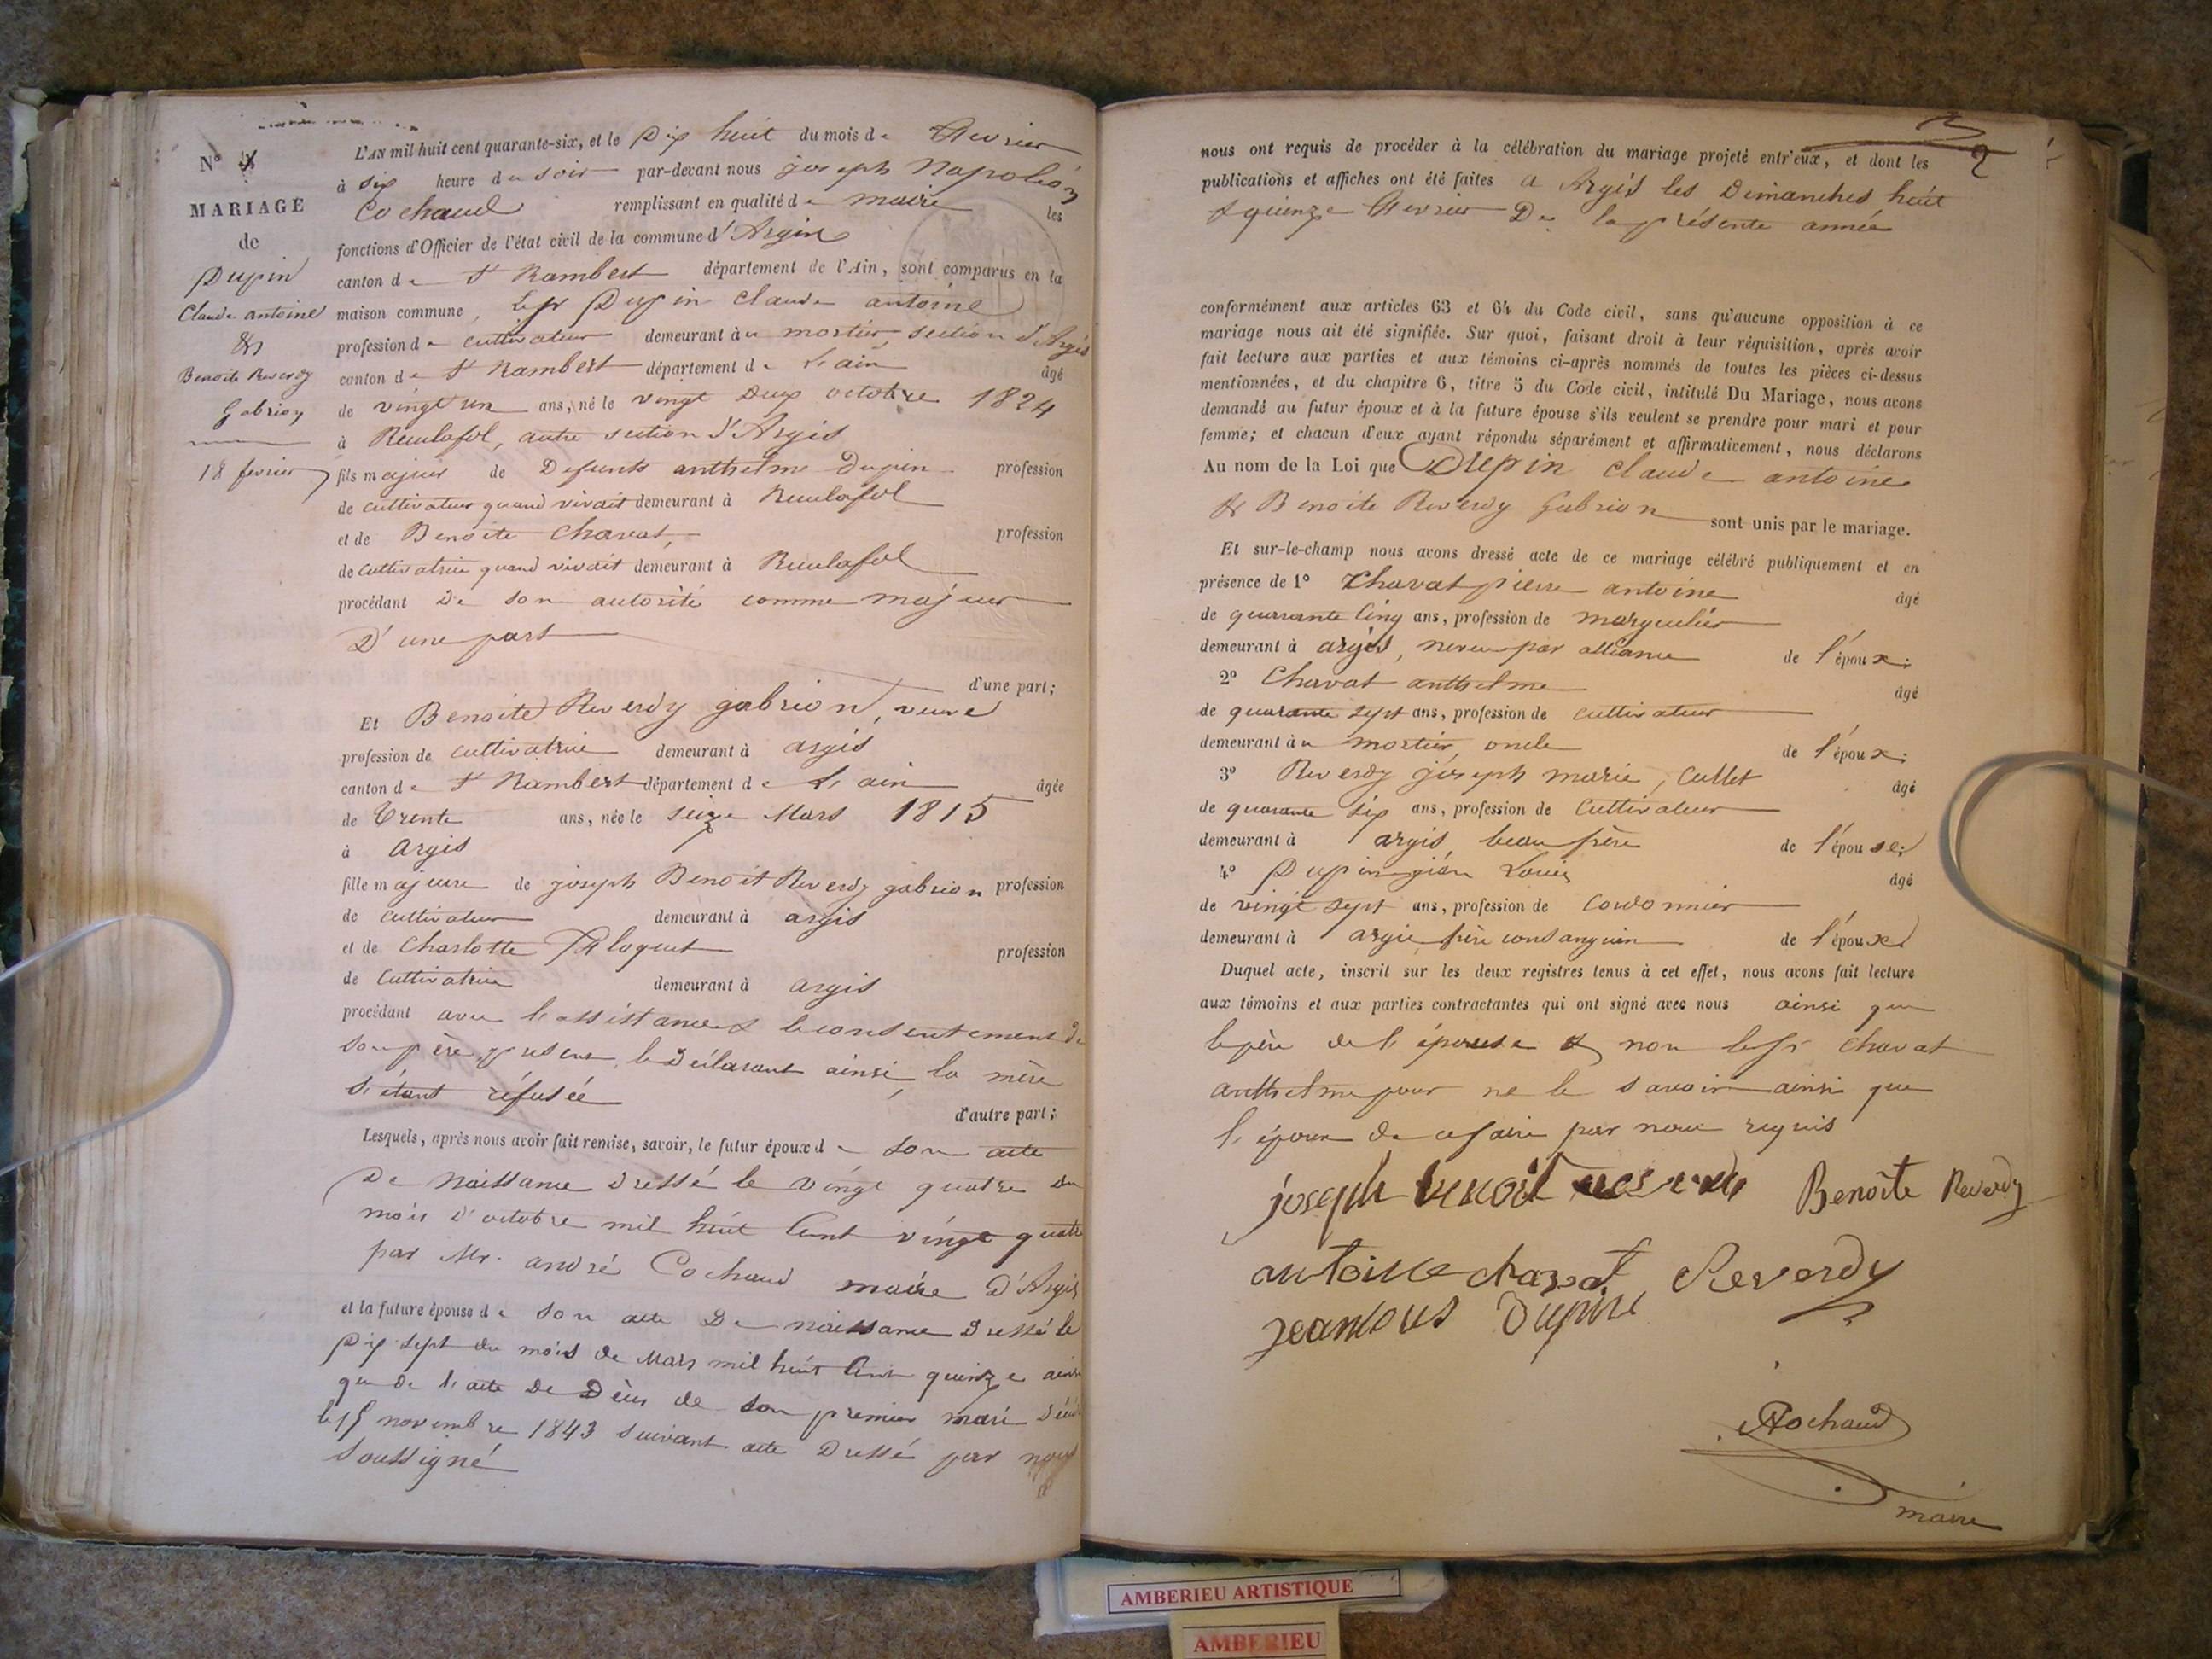 N° 4
MARIAGE
de
Dupin
Claude antoine
&
Benoite Reverdy
Gabrion
18 fevrier
L'AN mil huit cent quarante-six, et le Dix huit du mois de fevrier
à six heure du soir par-devant nous joseph Napoléon
Cochaud remplissant en qualité de maire les
fonctions d'Officier de l'état civil de la commune d'Argis
canton de St Rambert département de l'Ain, sont comparus en la
maison commune, le sr Dupin Claude antoine
profession de cultivateur demeurant au mortier, section d'Argis
canton de St Rambert département de L'ain âgé
de vingt un ans, né le vingt deux octobre 1824
à Reculafol, autre section d'Argis
fils majeur de Defunts anthelme Dupin profession
de cultivateur quand vivait demeurant à Reculafol
et de Benoite Chavat, profession
de cultivatrice quand vivait demeurant à Reculafol
procédant De son autorité comme majeur
D'une part
d'une part;
Et Benoite Reverdy gabrion, veuve
profession de cultivatrice demeurant à argis
canton de St Rambert département de L'ain âgée
de Trente ans, née le seize Mars 1815
à argis
fille majeure de joseph Benoit Reverdy gabrion profession
de cultivateur demeurant à argis
et de Charlotte profession
de Cultivatrice demeurant à argis
procédant avec l'assistance & le consentement de
son père, present le Déclarant ainsi, la mère
s'étant réfusée
d'autre part;
Lesquels, après nous avoir fait remise, savoir, le futur époux de son acte
De Naissance dressé le vingt quatre du
mois d'octobre mil huit Cent vingt quatre
par Mr. andré Cochaud maire d'Argis
et la future épouse de son acte De naissance Dressé le
Dix sept du mois de Mars mil huit Cent quinze ainsi
que de l'acte De Décès de son premier mari Décédé
le 15 novembre 1843 suivant acte Dressé par nous
soussigné
2
nous ont requis de procéder à la célébration du mariage projeté entr'eux, et dont les
publications et affiches ont été faites a Argis les Dimanches huit
& quinze fevrier De la présente année
conformément aux articles 63 et 64 du Code civil, sans qu'aucune opposition à ce
mariage nous ait été signifiée. Sur quoi, faisant droit à leur réquisition, après avoir
fait lecture aux parties et aux témoins ci-après nommés de toutes les pièces ci-dessus
mentionnées, et du chapitre 6, titre 5 du Code civil, intitulé Du Mariage, nous avons
demandé au futur époux et à la future épouse s'ils veulent se prendre pour mari et pour
femme; et chacun d'eux ayant répondu séparément et affirmativement, nous déclarons
Au nom de la Loi que Dupin Claude antoine
& Benoite Reverdy Gabrion sont unis par le mariage.
Et sur-le-champ nous avons dressé acte de ce mariage célébré publiquement et en
présence de 1° Chavat pierre antoine âgé
de quarante Cinq ans, profession de marguilier
demeurant à argis, neveu par alliance de l'époux;
2° Chavat anthelme âgé
de quarante sept ans, profession de cultivateur
demeurant au mortier, oncle de l'époux;
3° Reverdy joseph marie, Cullet âgé
de quarante six ans, profession de Cultivateur
demeurant à argis, beau frère de l'épouse;
4° Dupin jéan Louis âgé
de vingt sept ans, profession de cordonnier
demeurant à argis frère consanguin de l'époux
Duquel acte, inscrit sur les deux registres tenus à cet effet, nous avons fait lecture
aux témoins et aux parties contractantes qui ont signé avec nous ainsi que
le père de l'épouse & non le sr Chavat
anthelme pour ne le savoir ainsi que
l'époux de ce faire par nous requis
joseph benoit reverdy Benoîte Reverdy
antoine chavat Reverdy
jean louis Dupin
Cochaud
maire
AMBERIEU ARTISTIQUE
AMBERIEU